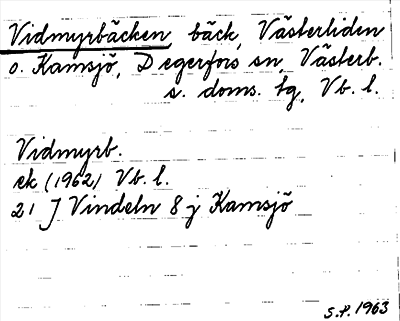 Vidmyrbäcken, bäck, Västerliden
o. Kamsjö, Degerfors sn, Västerb.
s. doms. tg, Vb. l.
Vidmyrb.
ek (1962) Vb. l.
21 J Vindeln 8 j Kamsjö
S.P. 1963